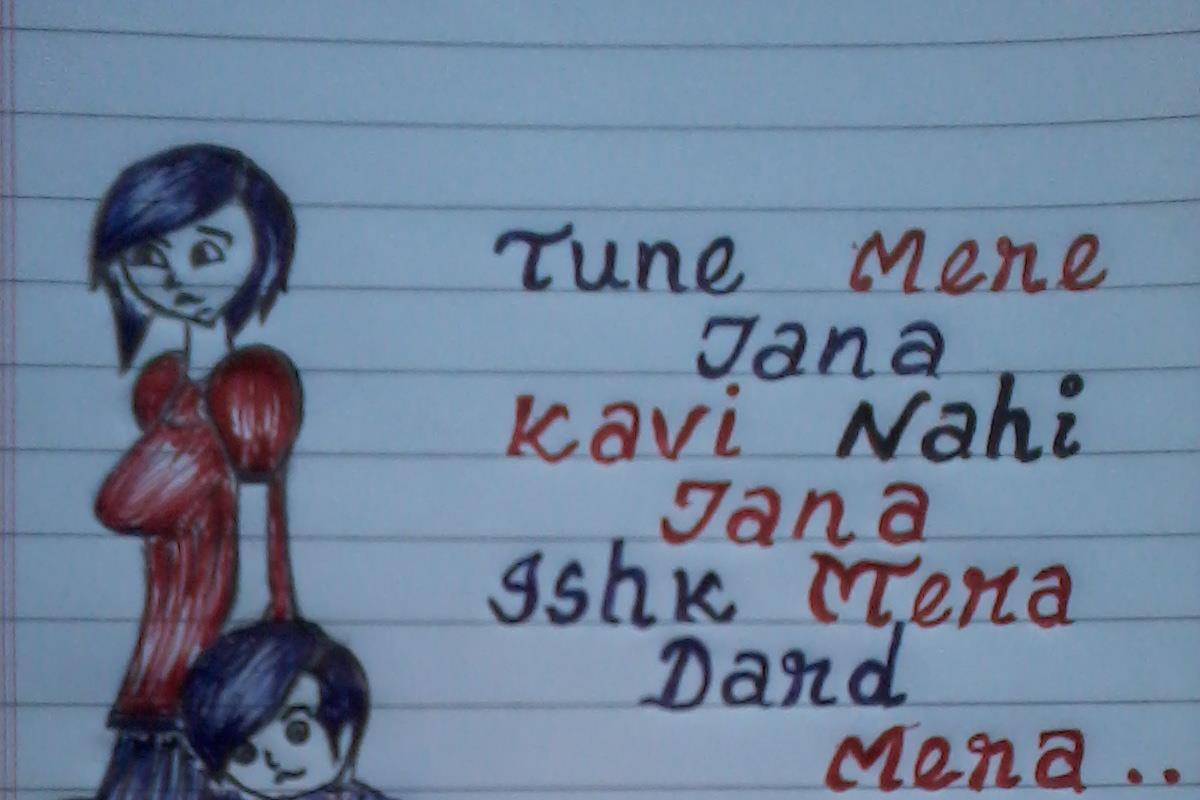 Tune Mere
Jana
Kavi Nahi
Jana
Ishk Mera
Dard
Mera ..